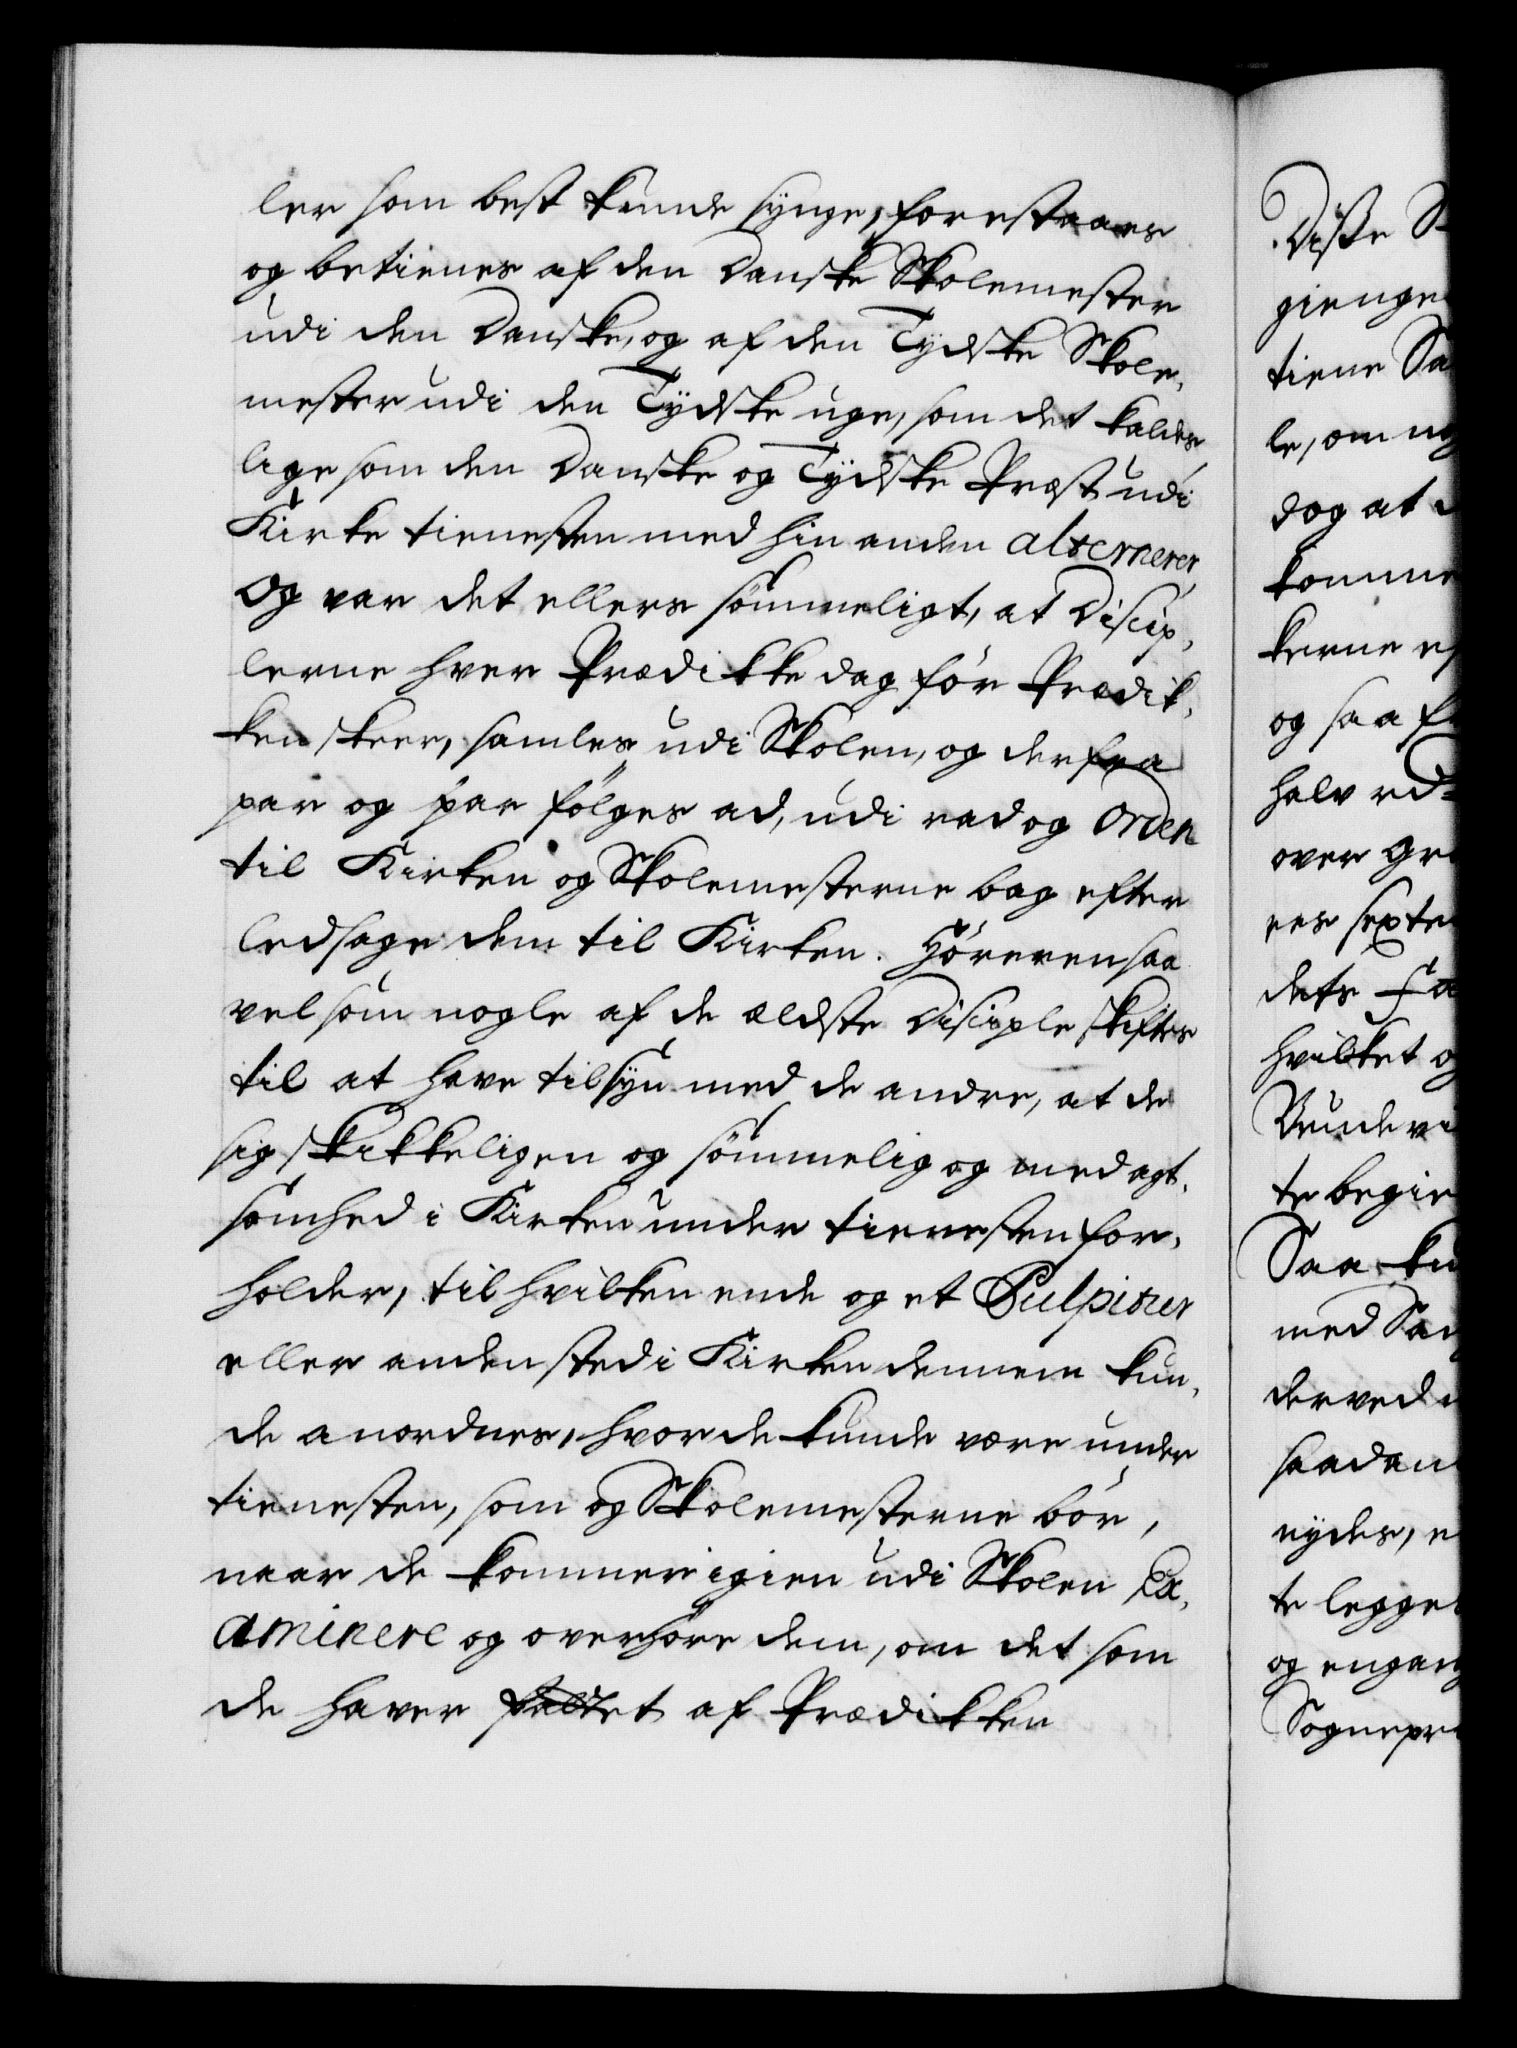 ler som best kunde synge, forestaaes
og betienes af den Danske Skolemester
udi den Danske, og af den Tydske Skole,
mester udi den Tydske uge, som det kaldes,
lige som den Danske og Tydske Præst udi
Kirke tienesten med hin anden alternerer,
Og var det ellers sømmeligt, at Discip,
lerne hver Prædikke dag før Prædik,
ken skeer, samles udi Skolen, og derfra
par og par følges ad, udi rad og Orden
til Kirken og Skolemesterne bag efter
ledsage dem til Kirken. Høreren saa
vel som nogle af de ældste Disciple skiftes
til at have tilsyn med de andre, at de
sig skikkeligen og sømmelig og med agt,
somhed i Kirken under tienesten for,
holder, til hvilken ende og et Pulpitur
eller anden sted i Kirken dennem kun,
de anordnes, hvor de kunde være under
tienesten, som og Skolemesterne bør,
naar de kommer igien udi Skolen Ex,
aminere og overhøre dem, om det som
de haver fattet af Prædikken
Diße
gienge
tiene
le, om
dog at
komme
kerne
og saa
halv
over
dets
hvilket
te begie
Saa
med
derved
saadan
nydes,
te legges
og engang
Sognepre